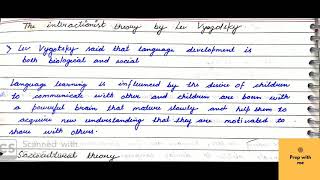 The interactionist theory by Lev Vygotsky
> Lev Vygotsky said that language development is
both biological and social
Language learning is influenced by the desire of children
to communicate with other and children are born with
a powerful brain that mature slowly and help them to
acquire new understanding that they are motivated to
share with others.
Scanned with
CS
Sociocultural theory
Prep with
me